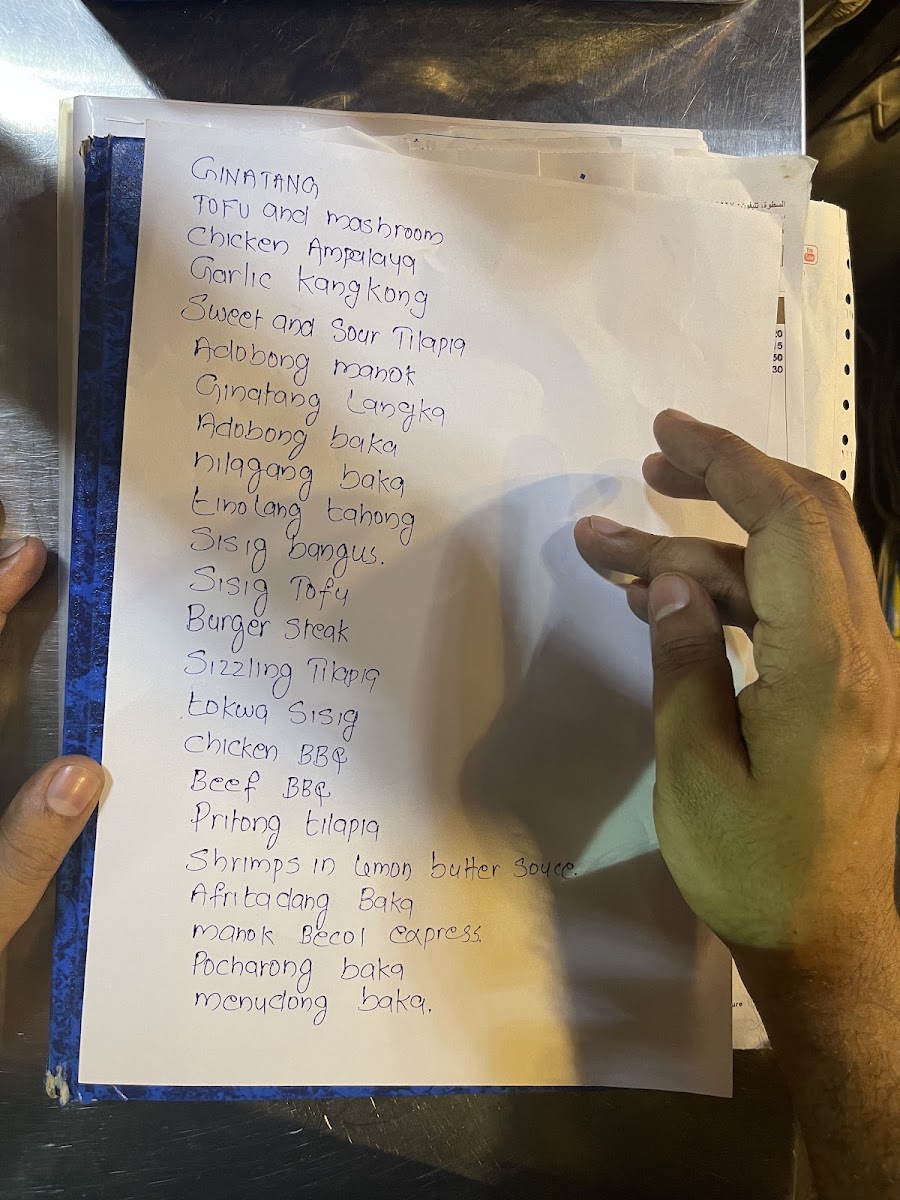 GINATANG
TOFU and mashroom
chicken Ampalaya
Garlic kangkong
Sweet and Sour Tilapia
Adobong manok
Ginatang Langka
Adobong baka
nilagang baka
tinolang tahong
Sisig bangus.
Sisig Tofu
Burger Steak
Sizzling Tilapia
tokwa Sisig
chicken BBQ
Beef BBQ
Pritong tilapia
Shrimps in Lemon butter Souce.
Afritadang Baka
manok Becol express.
Pocharong baka
menudong baka.
السطوة، تليفون:
20
5
50
30
ure